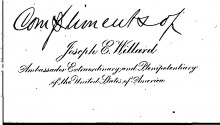 Compliments of
Joseph E. Willard
Ambassador Extraordinary and Plenipotentiary
of the United States of America